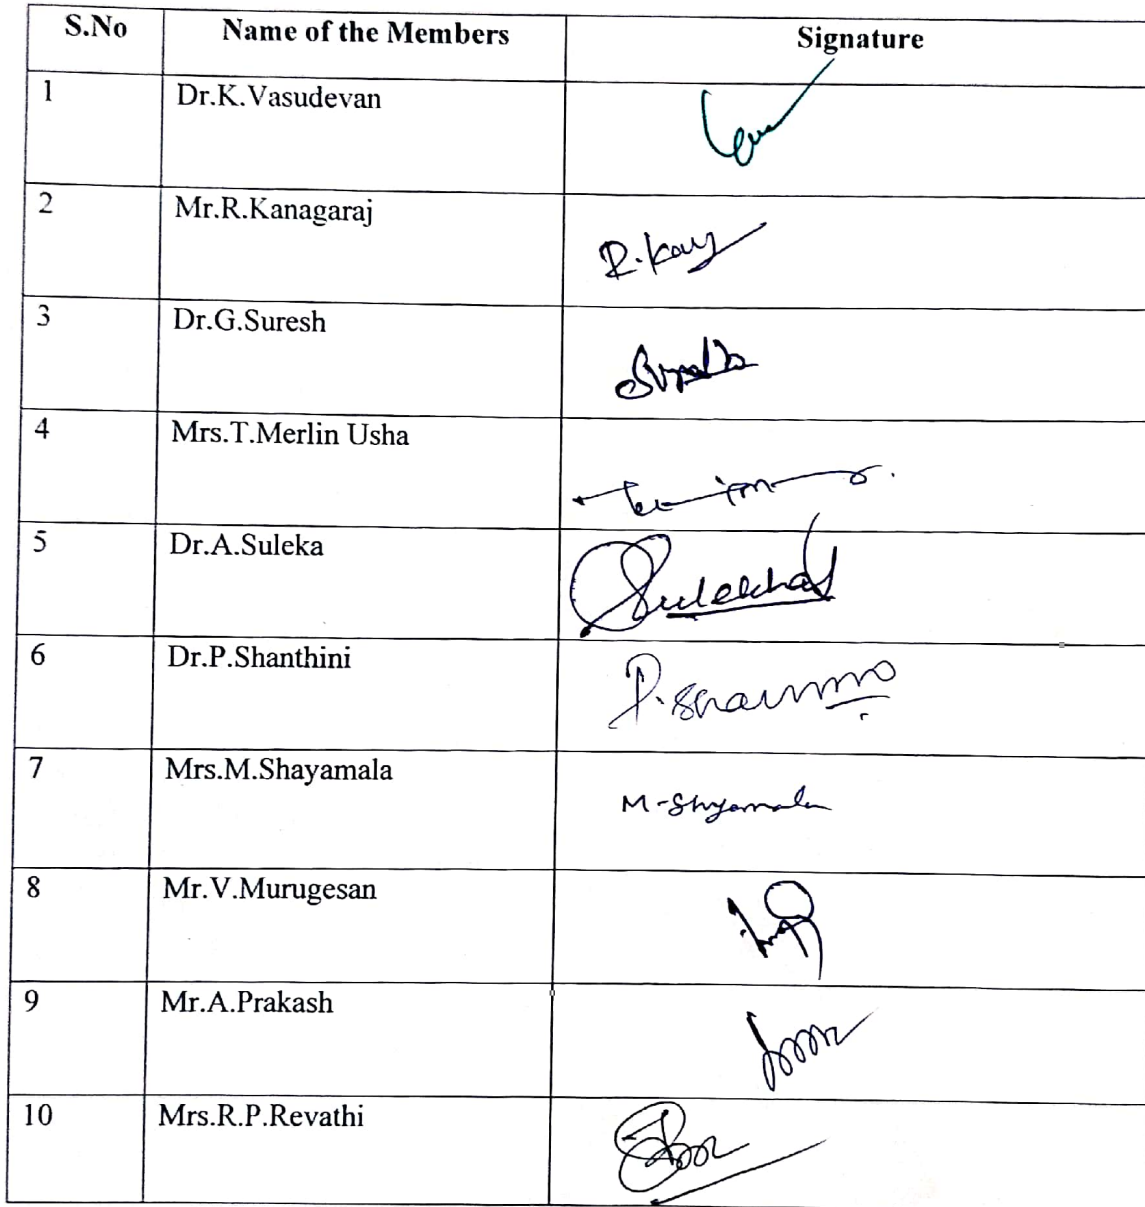 S.No Name of the Members Signature
1 Dr.K.Vasudevan
2 Mr.R.Kanagaraj
R.Kanj
3 Dr.G.Suresh
4 Mrs.T.Merlin Usha
5 Dr.A.Suleka
Sulekha
6 Dr.P.Shanthini
7 Mrs.M.Shayamala
M-Shyamala
8 Mr.V.Murugesan
9 Mr.A.Prakash
10 Mrs.R.P.Revathi